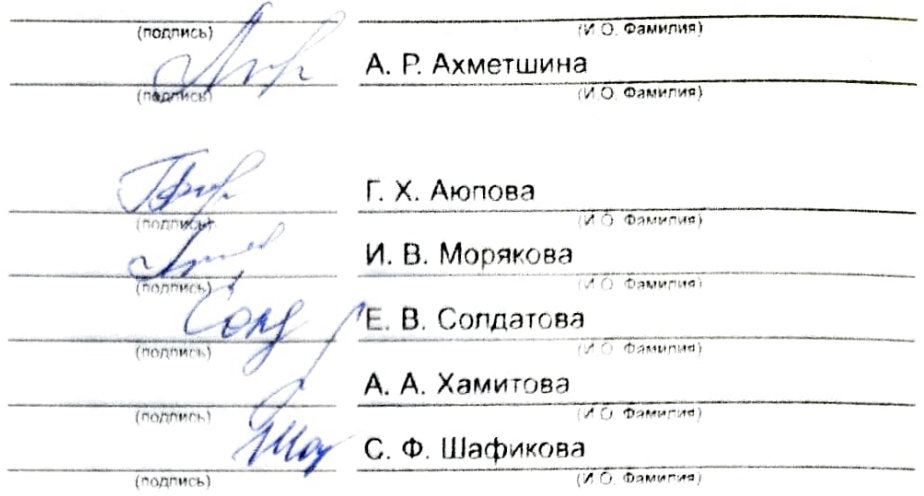 (подпись) (И.О. Фамилия)
А. Р. Ахметшина
(подпись) (И.О. Фамилия)
Г. Х. Аюпова
(подпись) (И.О. Фамилия)
И. В. Морякова
(подпись) (И.О. Фамилия)
Солд Е. В. Солдатова
(подпись) (И.О. Фамилия)
А. А. Хамитова
(подпись) (И.О. Фамилия)
С. Ф. Шафикова
(подпись) (И.О. Фамилия)